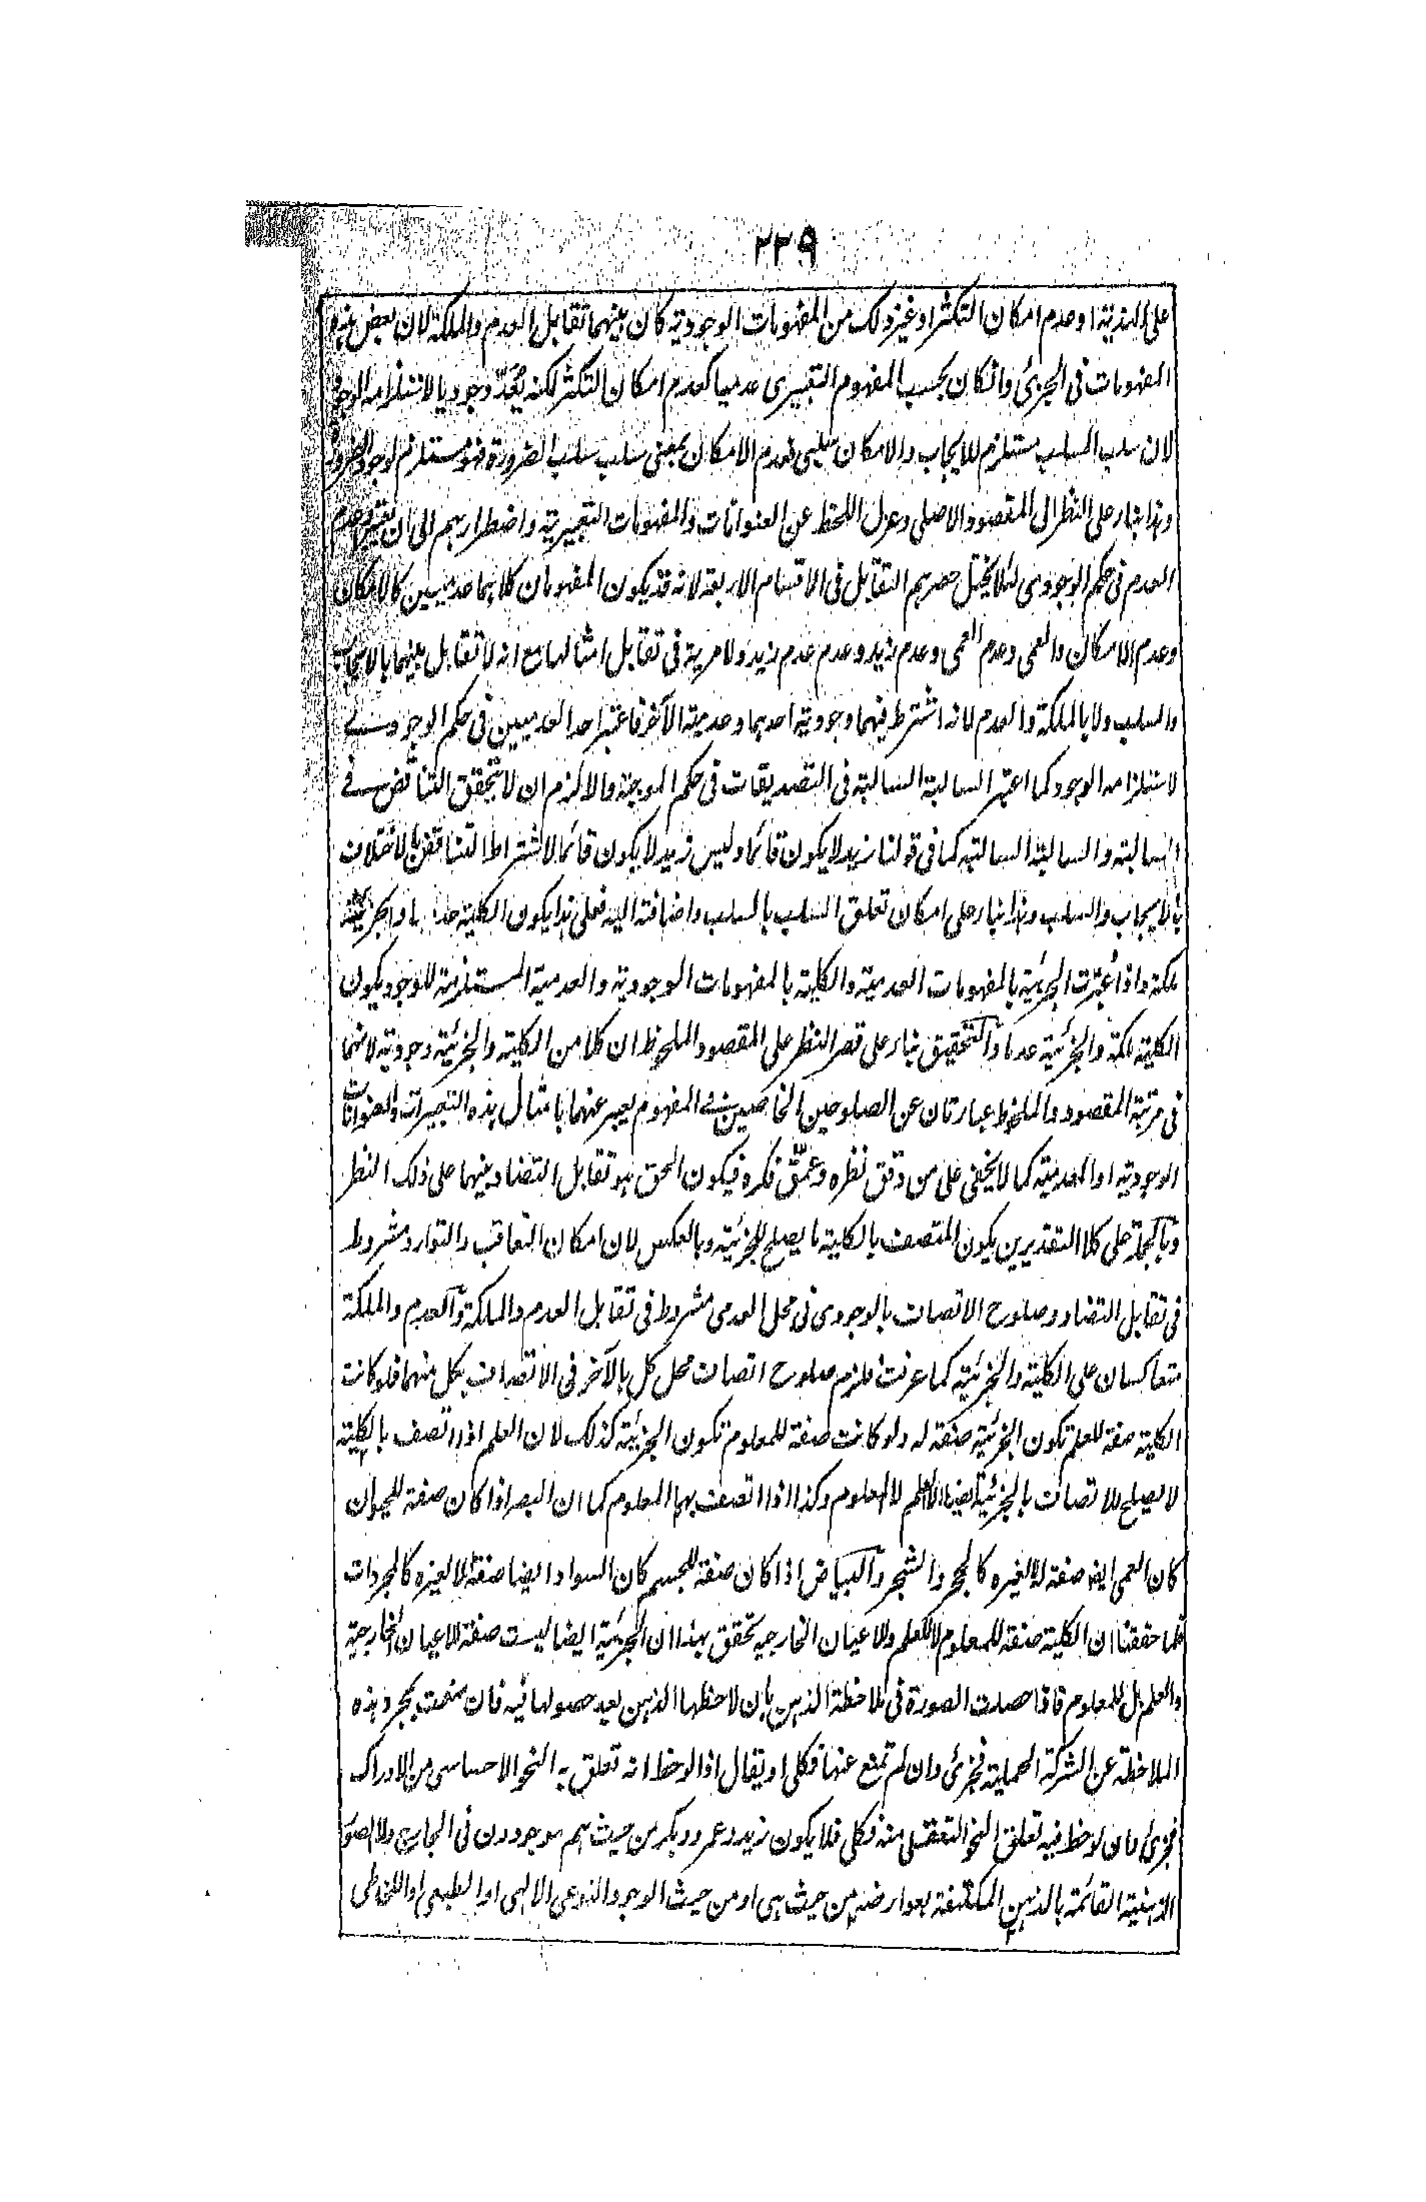 ٢٣٩
على الهذية او عدم امكان التكثر او غير ذلك من المفهومات الوجودية كان بينهما تقابل العدم والملكة لان بعض هذه
المفهومات فى الجزئى وانكان بحسب المفهوم التعبيرى عدميا كعدم امكان التكثر لكنه يُعَدّ وجوديا لاستلزامه الوجود
لان سلب السلب مستلزم للايجاب والامكان سلبى فعدم الامكان بمعنى سلب سلب الضرورة فهو مستلزم لوجود الضرورة
وهذا بناء على النظر الى المقصود الاصلى وعزل اللحظ عن العنوانات والمفهومات التعبيرية واضطرارهم الى ان يعتبر عدم
العدم فى حكم الوجودى لئلا يختل حصرهم التقابل فى الاقسام الاربعة لانه قد يكون المفهومان كلاهما عدميين كالامكان
وعدم الامكان والعمى وعدم العمى وعدم زيد وعدم عدم زيد ولا مرية فى تقابل امثالها مع انه لا تقابل بينهما بالايجاب
والسلب ولا بالملكة والعدم لانه اشترط فيهما وجودية احدهما وعدمية الآخر فاعتبر احد العدميين فى حكم الوجودى
لاستلزامه الوجود كما اعتبر السالبة السالبة فى التصديقات فى حكم الموجبة والا لزم ان لا تتحقق التناقض فى
السالبة والسالبة السالبة كما فى قولنا زيد لا يكون قائما وليس زيد لا يكون قائما لاشتراط التناقض بالاختلاف
بالايجاب والسلب وهذا بناء على امكان تعلق السلب بالسلب واضافته اليه فعلى هذا يكون الكلية عدما والجزئية
ملكة واذا اعتبرت الجزئية بالمفهومات العدمية والكلية بالمفهومات الوجودية والعدمية المستلزمة للوجود يكون
الكلية ملكة والجزئية عدما والتحقيق بناء على قصر النظر على المقصود الملحوظ ان كلا من الكلية والجزئية وجودية لانهما
فى مرتبة المقصود والملحوظ عبارتان عن الصلوحين الخاصين فى المفهوم يعبر عنهما بامثال هذه التعبيرات والعنوانات
الوجودية او العدمية كما لا يخفى على من دقق نظره وعمّق فكره فيكون الحق هو تقابل التضاد بينهما على ذلك النظر
وبالجملة على كلا التقديرين يكون المتصف بالكلية ما يصلح للجزئية وبالعكس لان امكان التعاقب والتوارد مشروط
فى تقابل التضاد وصلوح الاتصاف بالوجودى فى محل العدمى مشروط فى تقابل العدم والملكة والعدم والملكة
متعاكسان على الكلية والجزئية كما عرفت فلزم صلوح اتصاف محل كل بالآخر فى الاتصاف بكل منهما فلو كانت
الكلية صفة للعلم تكون الجزئية صفة له ولو كانت صفة للمعلوم تكون الجزئية كذلك لان العلم اذا اتصف بالكلية
لا يصلح للاتصاف بالجزئية ايضا الا العلم لا المعلوم وكذا اذا اتصف بهما المعلوم كما ان البصر اذا كان صفة للحيوان
كان العمى ايضا صفة له لا لغيره كالحجر والشجر والبياض اذا كان صفة للجسم كان السواد ايضا صفة له لا لغيره كالمجردات
فلما حققنا ان الكلية صفة للمعلوم لا للعلم ولا اعيان الخارجية تحقق بهذا ان الجزئية ايضا ليست صفة للاعيان الخارجية
والعلم بل للمعلوم فاذا حصلت الصورة فى ملاحظة الذهن بان لاحظها الذهن بعد حصولها فيه فان منعت بمجرد هذه
الملاحظة عن الشركة الحملية فجزئى وان لم تمنع عنها فكلى او يقال اذا لوحظ انه تعلق به النحو الاحساسى من الادراك
فجزئى وان لوحظ فيه تعلق النحو التعقلى منه فكلى فلا يكون زيد وعمرو وبكر من حيث هم موجودون فى الخارج ولا الصور
الذهنية القائمة بالذهن المكتنفة بعوارضه من حيث هى او من حيث الوجود النوعى الالهى او الطبعى او اللحاظى